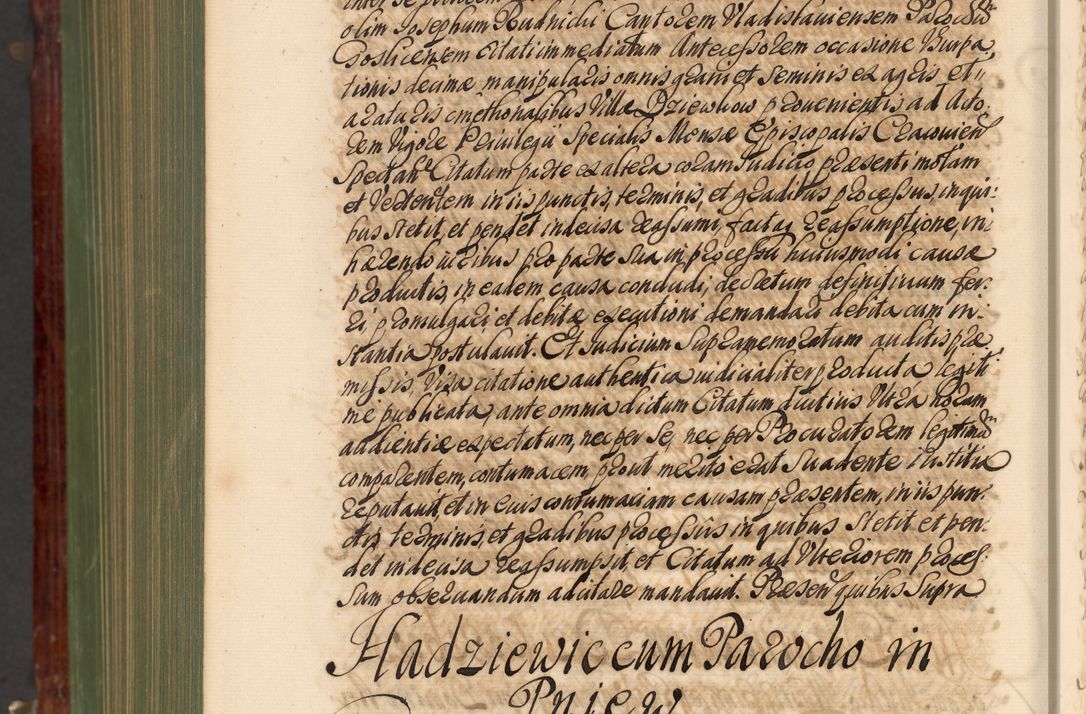 olim Josephum Rudnicki Cantorem Vladislauiensem Parochū
Goslicensem Citati immediatum Antecessorem occasione Usurpa
tionis decimæ manipularis omnis grani et Seminis ex agris et
araturis cmethonalibus Villæ Dziewkow prouenientis ad Acto
rem Vigore Priuilegii Specialis Mensæ Episcopalis Cracouien
Spectan Citatum parte ex altera coram Judicio præsenti motam
et Vertentem in iis punctis, terminis, et gradibus processus, in qui-
bus stetit, et pendet indecisa reassumi, factaq reassumptione, in-
hærendo iuribus pro parte Sua in processu huiusmodi causæ
productis, in eadem causa concludi, decretum definitiuum fer-
ri promulgari et debitæ executioni demandari debita cum in-
stantia postulauit. Et Judicium Supramemoratum auditis præ-
missis, Visa citatione authentica iudicialiter producta legiti
me publicata, ante omnia dictum Citatum diutius Ultra horam
audientiæ expectatum, nec per Se, nec per Procuratorem legitimū
comparentem, contumacem prout merito erat Suadente iustitia
reputauit, et in eius contumaciam causam præsentem, in iis pun-
ctis terminis et gradibus processus in quibus Stetit et pen-
det indecisa reassumpsit et Citatum ad Ulteriorem proces-
sum obseruandum adcitare mandauit. Præsen quibus Supra
Hadziewic cum Parocho in
Pniew